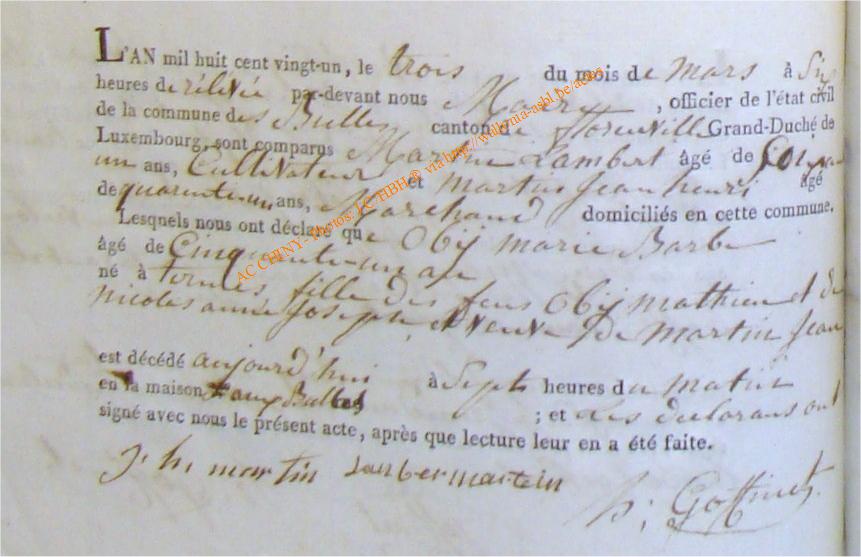 L'AN mil huit cent vingt-un, le trois du mois de mars à Six
heures de rélevée par-devant nous Maire, officier de l'état civil
de la commune des Bulles canton de florenville Grand-Duché de
Luxembourg, sont comparus Martin Lambert âgé de
un ans, Cultivateur et martin Jean henri âgé
de quarente-un ans, Marchand domiciliés en cette commune.
Lesquels nous ont déclaré que Obij marie Barbe
âgé de Cinquente-un an
né à fille des feus Obij mathieu et de
nicolas année Joseph, et veuve de martin Jean
est décédé aujourd'hui à Septs heures du matin
en la maison aux Bulles ; et les declarans ont
signé avec nous le présent acte, après que lecture leur en a été faite.
J h martin Lanbermartin
h; Goffinet
AC CHINY - Photos: LC/HBH® via http://wallonia-asbl.be/actes